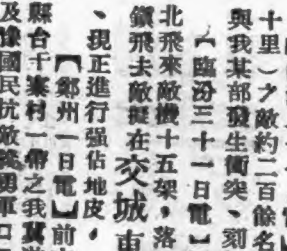 十里）之敵約二百餘名
與我某部發生衝突、刻
【臨汾三十一日電】
北飛來敵機十五架，落
鎭飛去敵擬在交城東
、現正進行强佔地皮，
【鄭州一日電】前
縣台千寨村一帶之我
及豫國民抗敵義勇軍